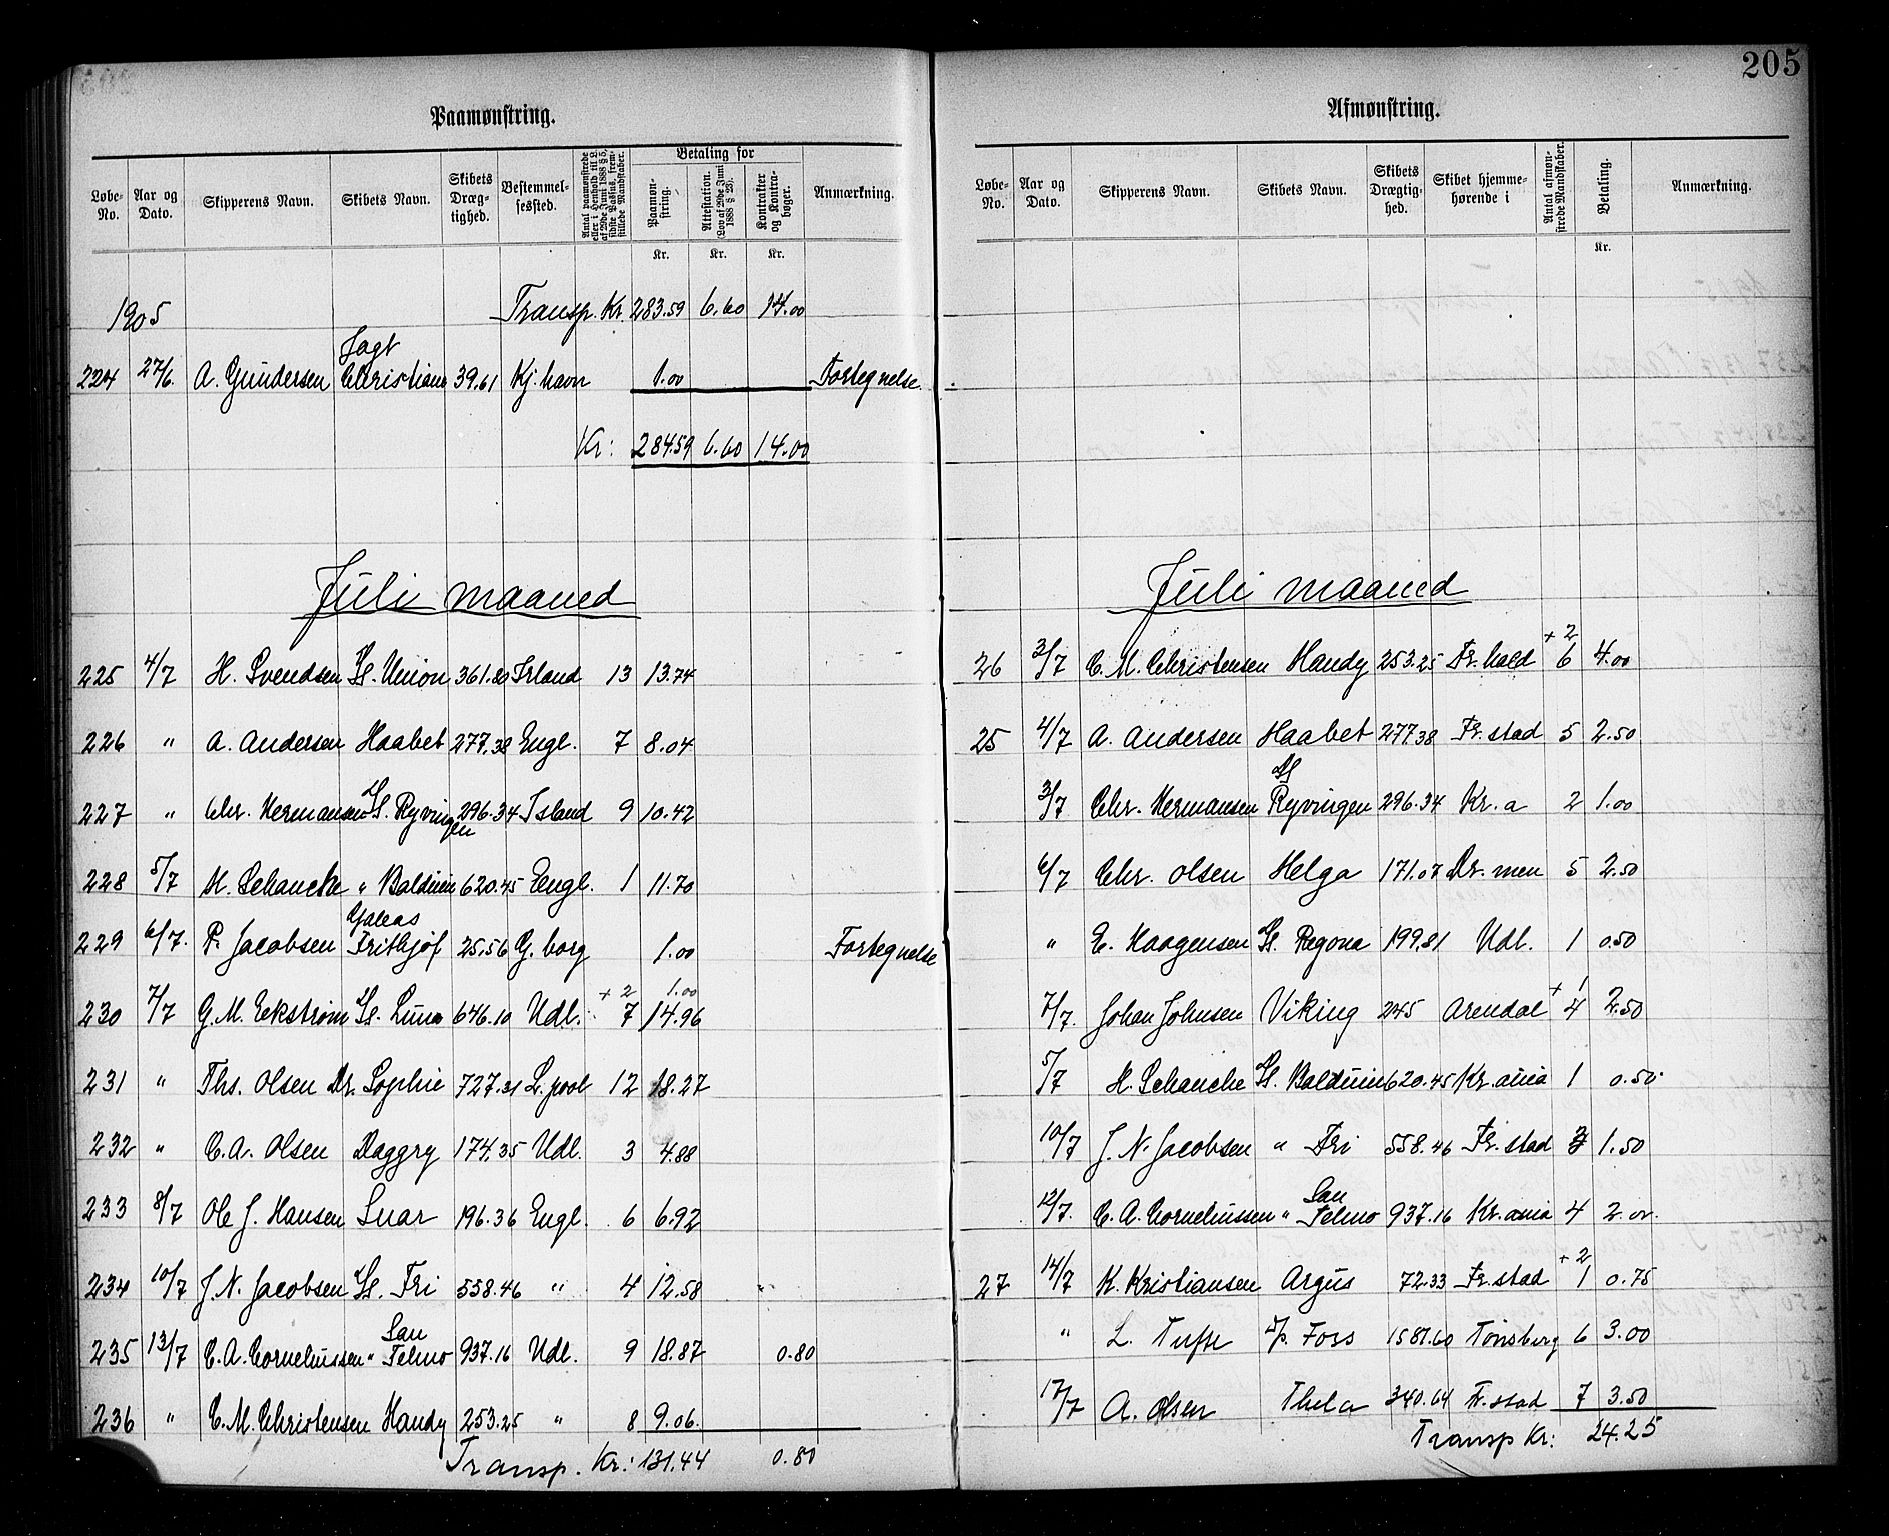 205
Paamønstring.
Løbe-No. Aar og Dato. Skipperens Navn. Skibets Navn. Skibets Dræg-tighed. Bestemmel-sessted. Antal paamønstrede eller i Henhold til L. af 29de Juni 1888 § 5, sidste Passus, frem-stillede Mandskaber. Betaling for Paamøn-string. Attestation. (Lov af 29de Juni 1888 § 23). Kontrakter og Kontra-bøger. Anmærkning.
Kr. Kr. Kr.
1905 Transp. Kr. 283.59 6.60 14.00
Jagt
224 27/6. A. Gundersen Christiane 39.61 Kj.havn 1.00 Fortegnelse.
Kr: 284.59 6.60 14.00
Juli maaned
225 4/7 H. Svendsen Ds. Union 361.80 Irland 13 13.74
226 " A. Andersen Haabet 277.38 Engl. 7 8.04
227 " Chr. Hermansen Ds. Ryvingen 296.34 Island 9 10.42
228 5/7 H. Schanche " Balduin 620.45 Engl. 1 11.70
Galeas
229 6/7. P. Jacobsen Frithjof 25.56 G.borg 1.00 Fortegnelse
+ 2 1.00
230 7/7 G. M. Eckstrøm Ds. Luna 646.10 Udl. 7 14.96
231 " Ths. Olsen Dr. Sophie 727.31 L.pool 12 18.27
232 " C. A. Olsen Daggry 174.35 Udl. 3 4.88
233 8/7 Ole J. Hansen Snar 196.36 Engl. 6 6.92
234 10/7 J. N. Jacobsen Ds. Fri 558.46 " 4 12.58
San
235 13/7 C. A. Corneliussen " Telmo 937.16 Udl. 9 18.87 0.80
236 " C. M. Christensen Handy 253.25 " 8 9.06.
Transp. Kr.: 131.44 0.80
Afmønstring.
Løbe-No. Aar og Dato. Skipperens Navn. Skibets Navn. Skibets Drægtig-hed. Skibet hjemme-hørende i Antal afmøn-strede Mandskaber. Betaling. Anmærkning.
Kr.
Juli maaned
+ 2
26 3/7 C. M. Christensen Handy 253.25 Fr.hald 6 4.00
25 4/7 A. Andersen Haabet 277.38 Fr.stad 5 2.50
Ds
3/7 Chr. Hermansen Ryvingen 296.34 Kr.a 2 1.00
6/7 Chr. Olsen Helga 171.07 Dr.men 5 2.50
" E. Haagensen Ds. Regona 199.81 Udl. 1 0.50
+ 1
7/7. Johan Johnsen Viking 245 Arendal 4 2.50
5/7 H. Schanche Ds. Balduin 620.45 Kr.ania 1 0.50.
10/7 J. N. Jacobsen " Fri 558.46 Fr.stad 3 1.50
San
12/7. C. A. Corneliussen " Telmo 937.16 Kr.ania 4 2.00.
+ 2
27 14/7 K. Kristiansen Argus 72.33 Fr.stad 1 0.75
" L. Foss 1581.60 Tønsberg 6 3.00
17/7 A. Olsen Thela 340.64 Fr.stad 7 3.50
Transp Kr: 24.25